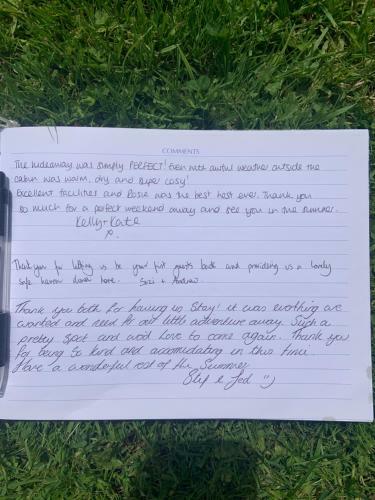 COMMENTS
The hideaway was simply PERFECT! Even with awful weather outside the
cabin was warm, dry and super cosy!
Excellent facilities and Rosie was the best host ever. Thank you
so much for a perfect weekend away and see you in the summer.
Kelly-Kate
x.
Thank you for letting us be your first guests back and providing us a lovely
safe haven down here. Suzi + Andrew
Thank you both for having us stay! it was everthing we
wanted and need for our little adventure away. Such a
pretty spot and would Love to come again. Thank you
for being so kind and accomidating in this time.
Have a wonderful rest of the Summer
& Jed :)